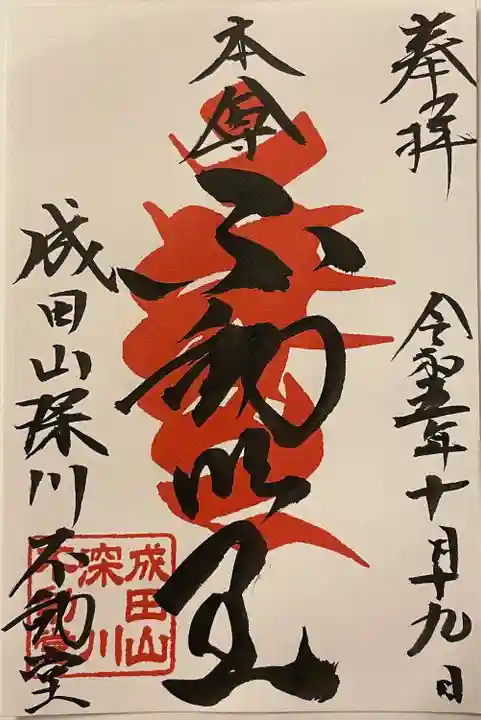 奉拝
令和五年十月十九日
本尊
不動明王
成田山深川不動堂
成田山
深川
不動堂